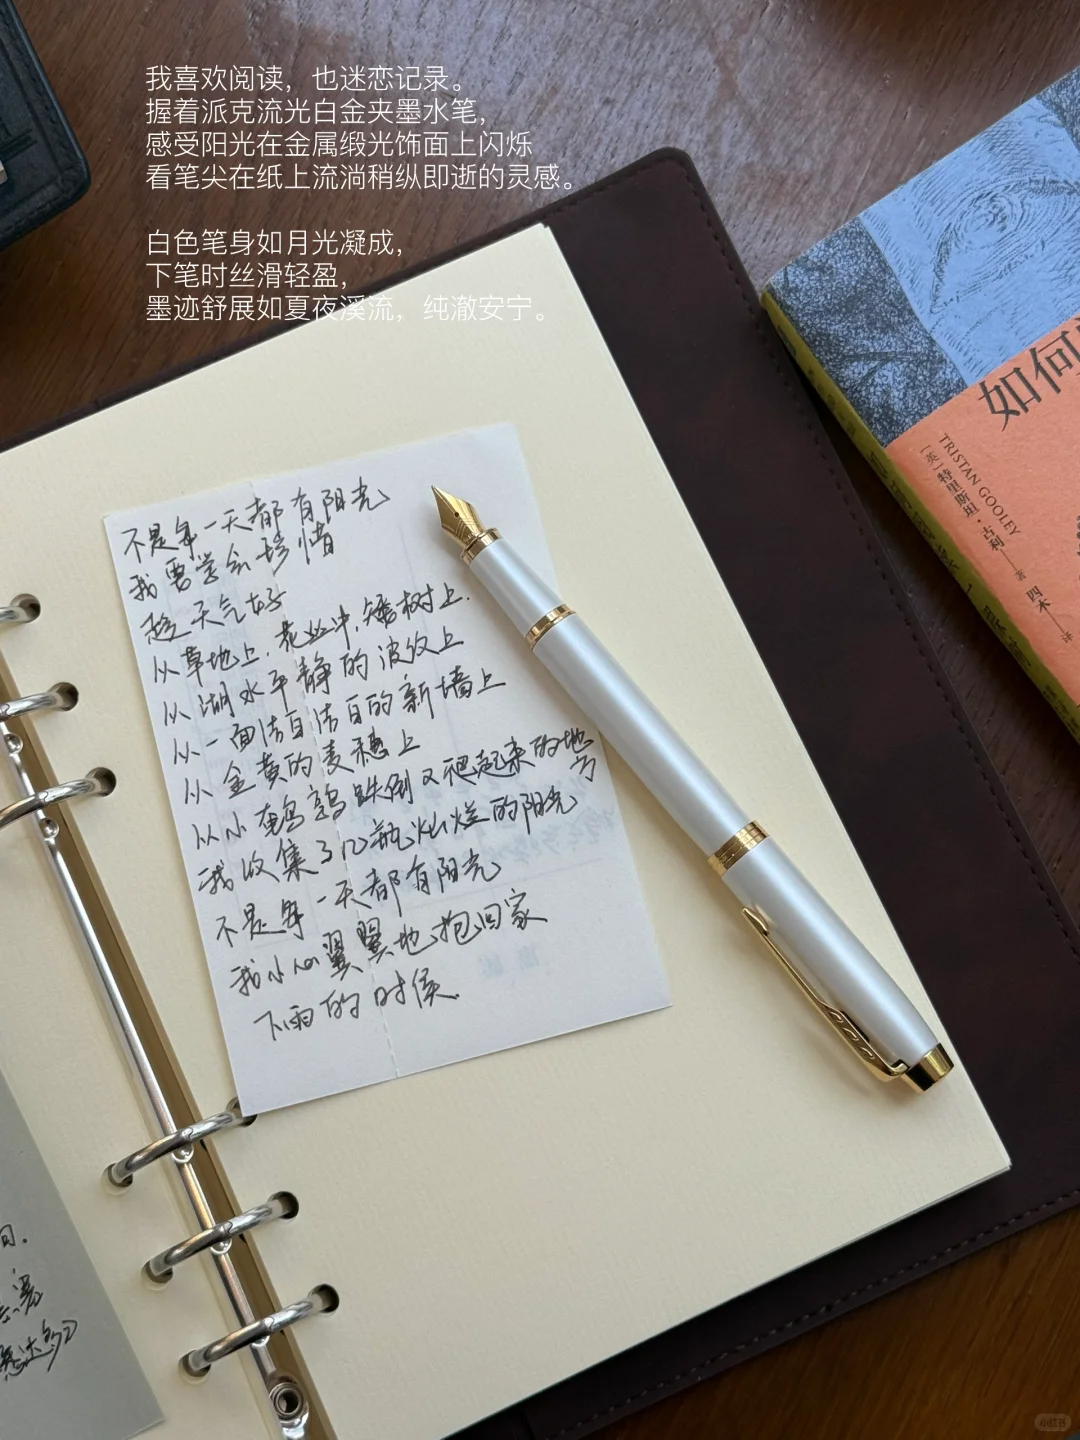 我喜欢阅读，也迷恋记录。
握着派克流光白金夹墨水笔，
感受阳光在金属缎光饰面上闪烁
看笔尖在纸上流淌稍纵即逝的灵感。
白色笔身如月光凝成，
下笔时丝滑轻盈，
墨迹舒展如夏夜溪流，纯澈安宁。
不是每一天都有阳光
我要学会珍惜
趁天气好
从草地上，花丛中，矮树上.
从湖水平静的波纹上
从一面洁白洁白的新墙上
从金黄的麦穗上
从小鹌鹑跌倒又爬起来的地方
我收集了几瓶灿烂的阳光
不是每一天都有阳光
我小心翼翼地抱回家
下雨的时候.
如何
TRISTAN GOOLEY
［英］特里斯坦·古利——著
四木——译
小红书